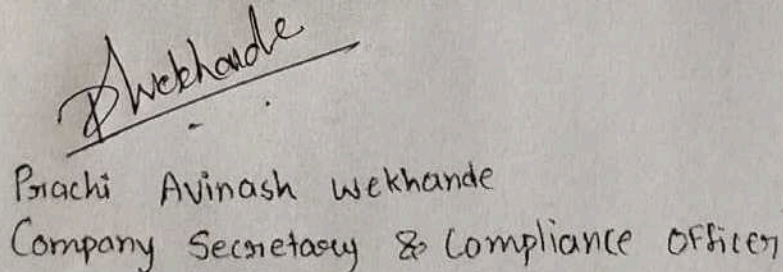 PWekhande
Prachi Avinash Wekhande
Company Secretary & Compliance Officer